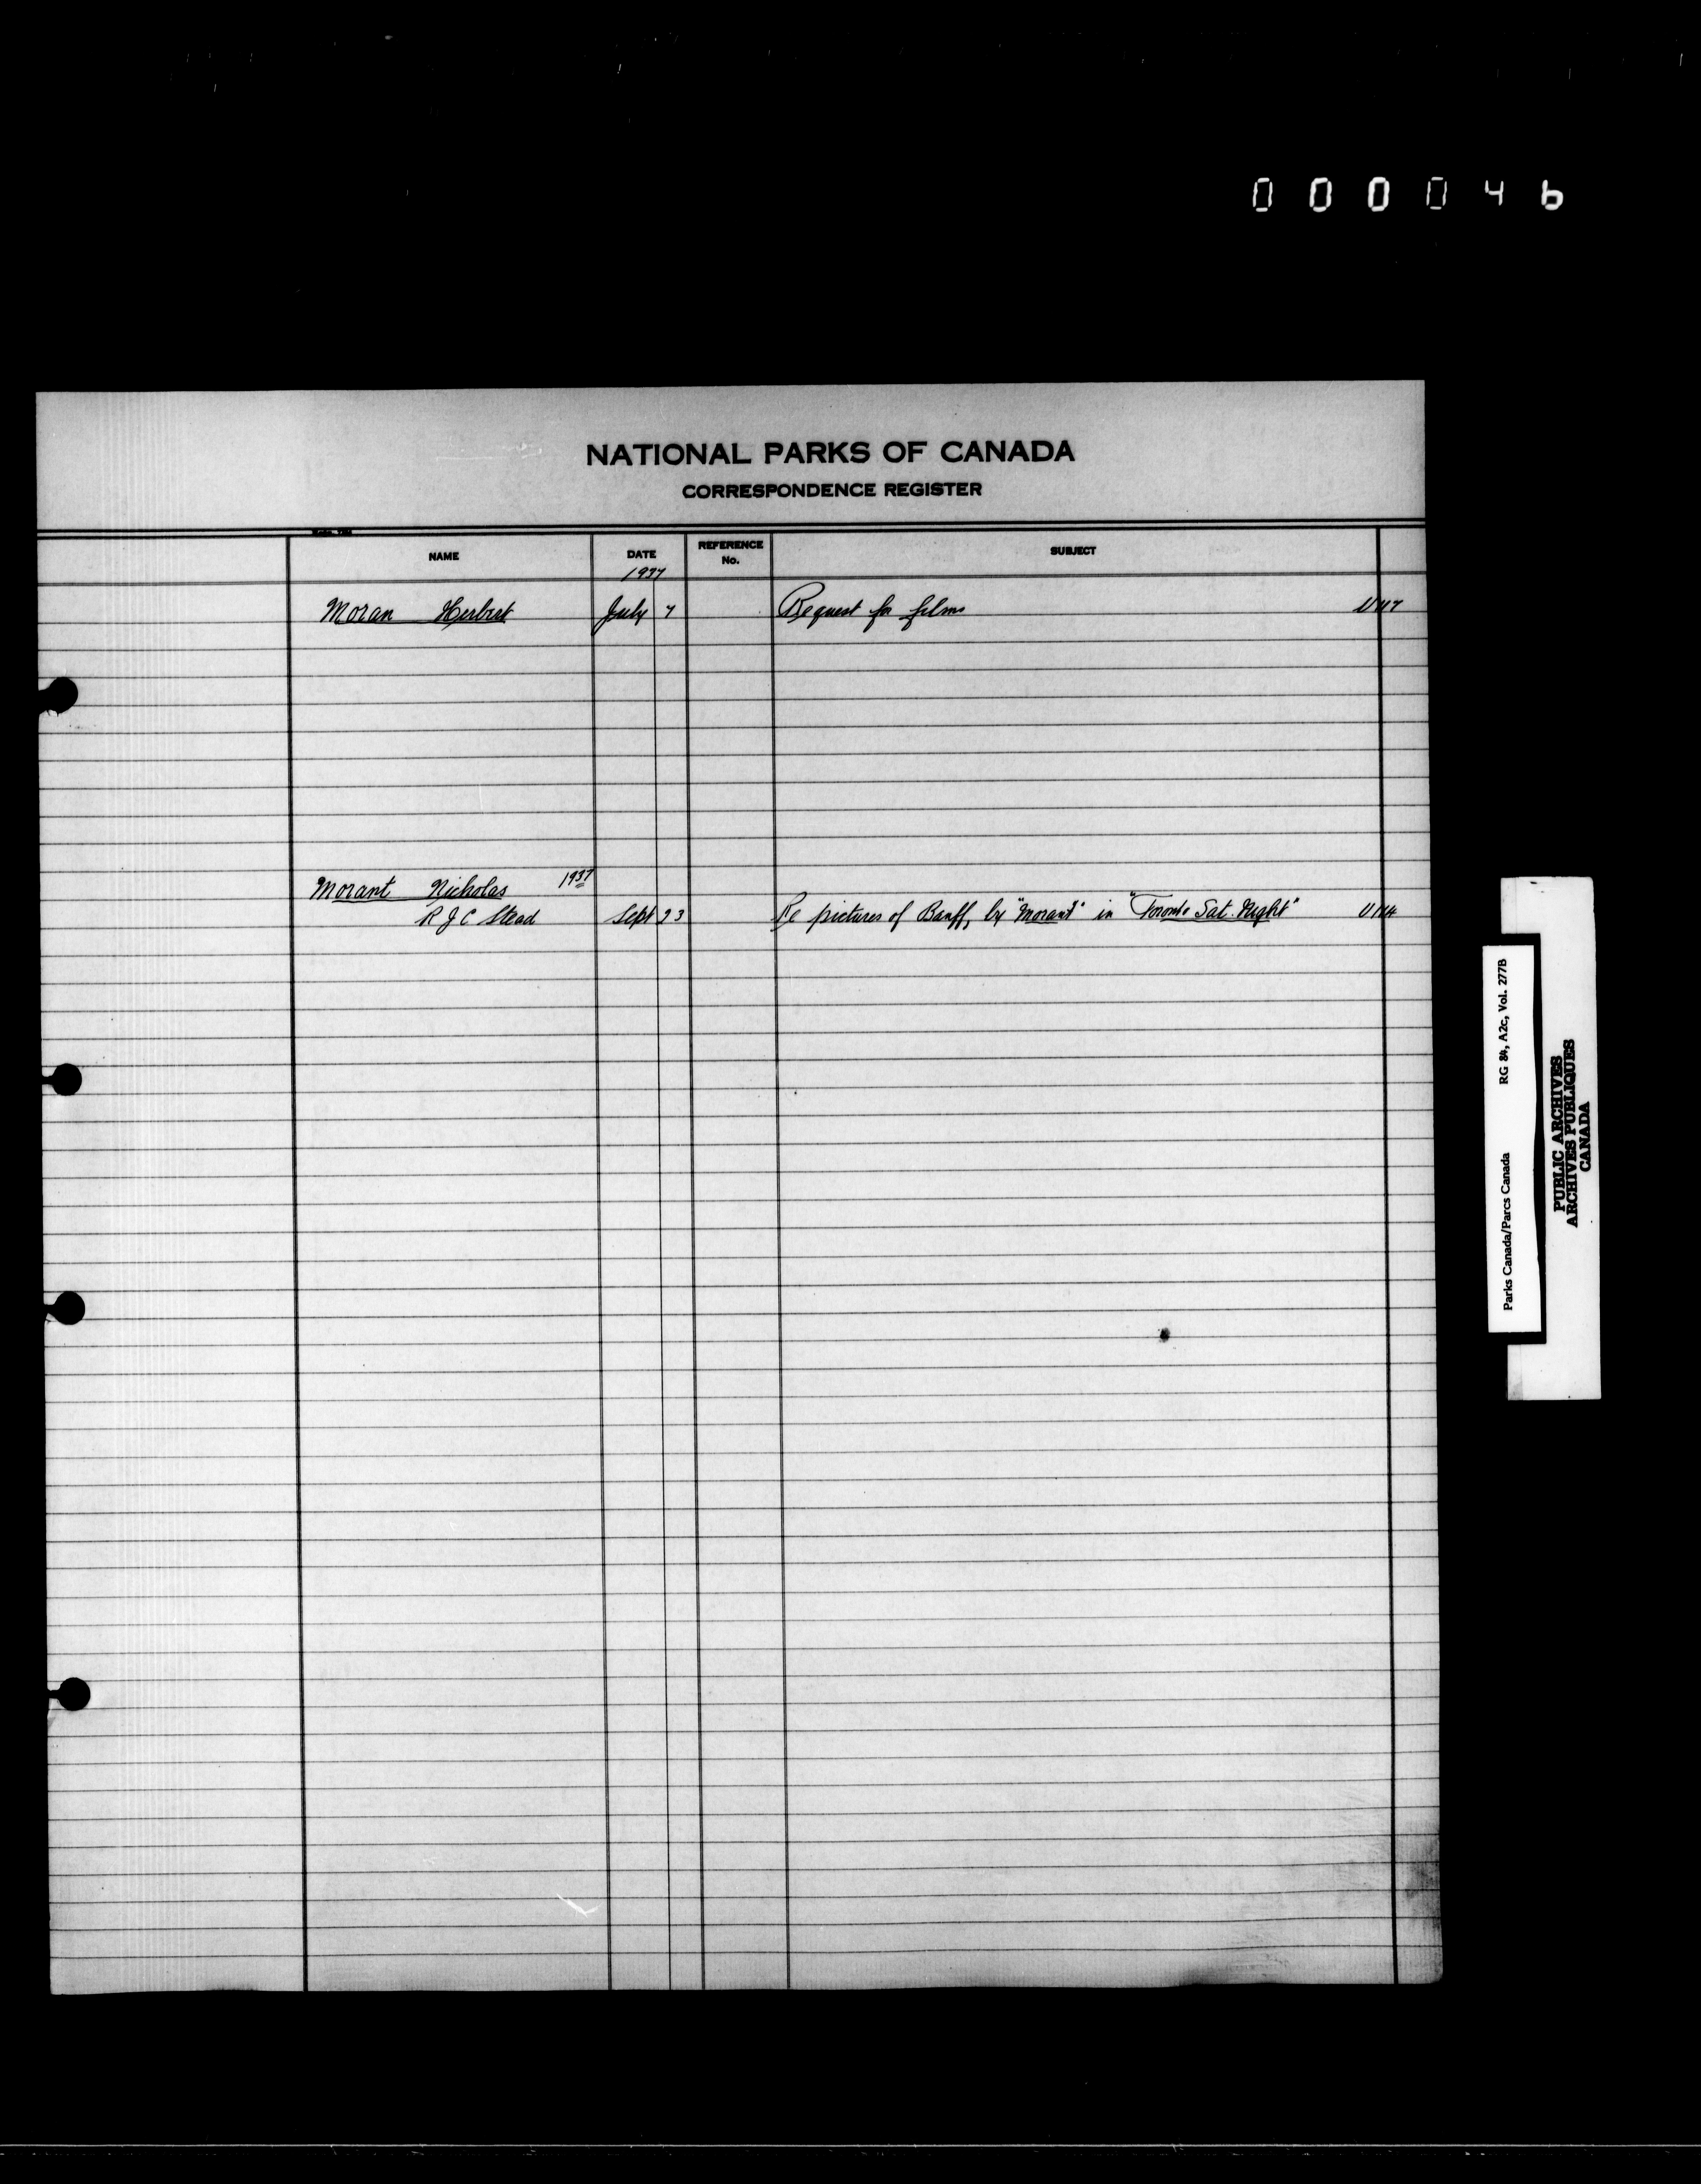 000046
NATIONAL PARKS OF CANADA
CORRESPONDENCE REGISTER
NAME DATE REFERENCE No. SUBJECT
1937
Moran Herbert July 7 Request for films U 117
Morant Nicholas 1937
R J C Stead Sept 23 Re pictures of Banff, by "Morant" in "Toronto Sat. Night" U 114
Parks Canada/Parcs Canada RG 84, A2c, Vol. 277B
PUBLIC ARCHIVES
ARCHIVES PUBLIQUES
CANADA